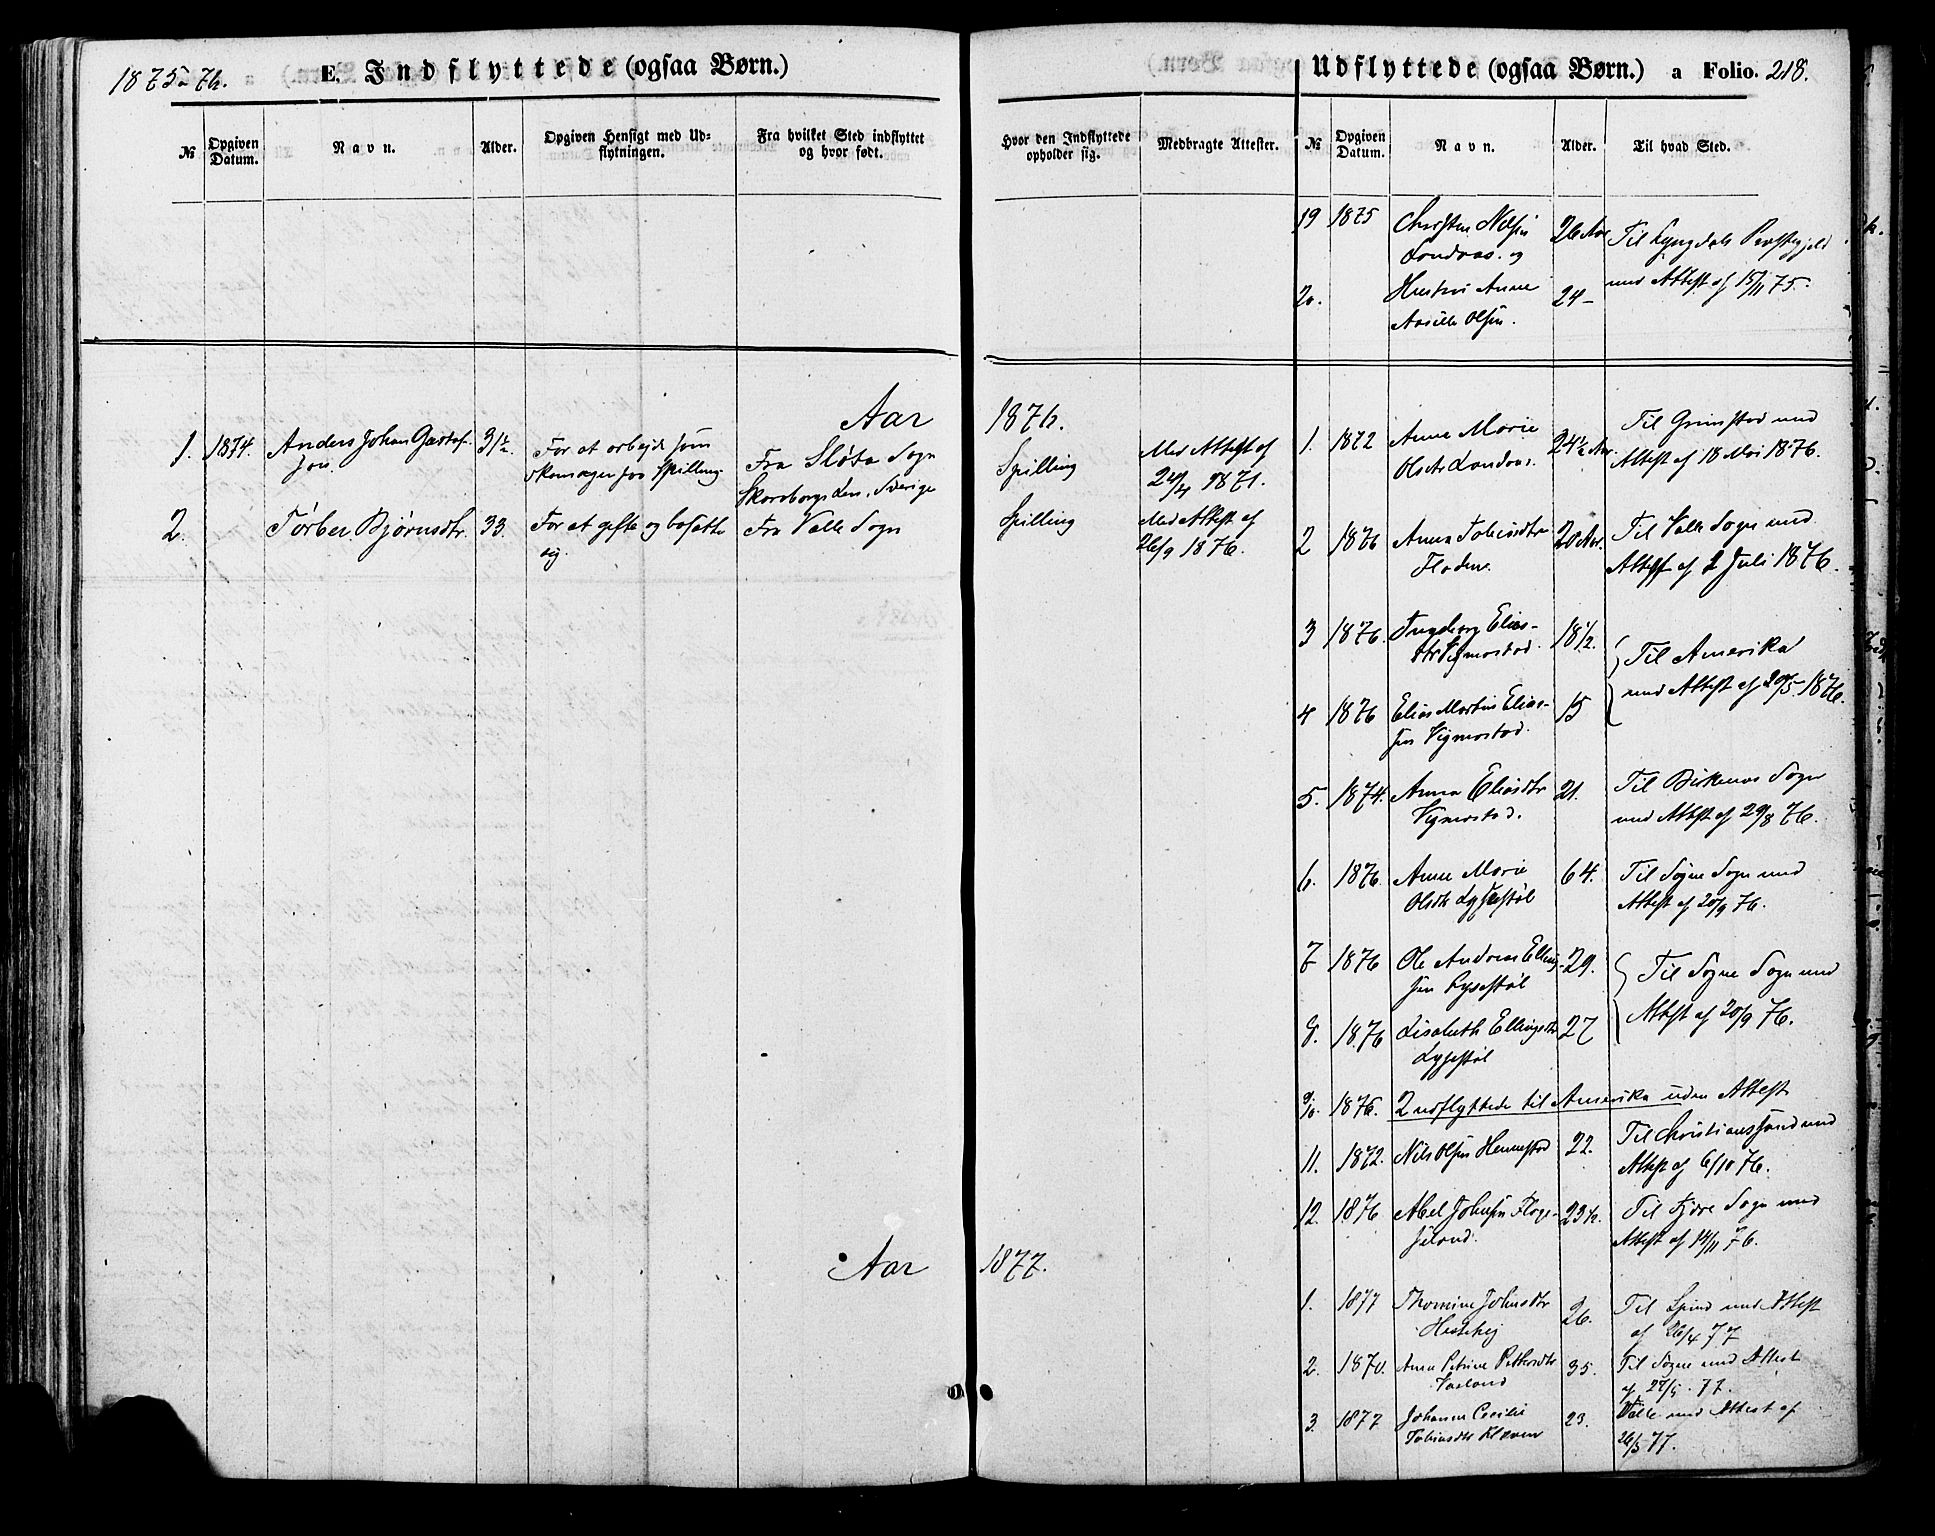 1875-76.
E. Indflyttede (ogsaa Børn.)
№
Opgiven Datum.
Navn.
Alder.
Opgiven Hensigt med Udflytningen.
Fra hvilket Sted indflyttet og hvor født.
Aar
1. 1874. Anders Johan Gustaf- 31½. For at arbejde som Fra Slöta Sogn
son. Skomager paa Spilling Skaraborgs Len, Sverige
2. Tørber Bjørnsdtr. 33. For at gifte og bosætte Fra Valle Sogn
sig.
Aar
Hvor den Indflyttede opholder sig.
Medbragte Attester.
1876.
Spilling Med Attest af
24/4 1871.
Spilling Med Attest af
26/9 1876.
1877.
Udflyttede (ogsaa Børn.) a Folio. 218.
№
Opgiven Datum.
Navn.
Alder.
Til hvad Sted.
19 1875 Christen Nilsen 26 Aar Til Lyngdals Præstegjeld
Landaas. og med Attest af 15/11 75.
20. Hustru Anne 24-
Aasille Olsen.
1. 1872 Anne Marie 24½ Aar. Til Grimstad med
Olsdtr Landaas. Attest af 18 Mai 1876.
2 1876 Anna Tobiasdtr 20 Aar. Til Valle Sogn med
Fladene. Attest af 2 Juli 1876.
3 1876. Ingeborg Elias- 18½. Til Amerika
dtr Vigmostad. med Attest af 20/5 1876.
4 1876 Elias Martin Elias- 15
sen Vigmostad.
5. 1874. Anna Eliasdtr 21. Til Birkenes Sogn
Vigmostad. med Attest af 29/8 76.
6. 1876. Anne Marie 64. Til Søgne Sogn med
Olsdtr Lysestøl Attest af 20/9 76.
7 1876 Ole Andreas Elling- 29. Til Søgne Sogn med
sen Lysestøl Attest af 20/9 76.
8. 1876 Lisabeth Ellingsdtr 27
Lysestøl
9/10. 1876. 2 udflyttede til Amerika uden Attest
11. 1872. Nils Olsen Hennestad 22. Til Christianssand med
Attest af 6/10 76.
12. 1876 Abel Johnsen Flage- 23½. Til Fjære Sogn med
seland. Attest af 14/11 76.
1. 1877 Thomine Johnsdtr 26. Til Spind med Attest
Hestehei af 26/4 77
2. 1870. Anna Petrine Pettersdtr 35. Til Søgne med Attest
Vaeland af 27/5. 77.
3. 1877 Johanne Cecilie 23. Valle med Attest af
Tobiasdtr Kleven 26/5 77.